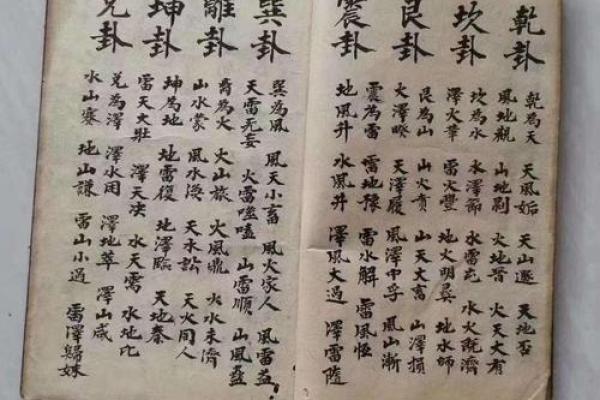 乾卦
乾為天 天風姤 天山遯 天地否
風地觀 山地剝 火地晉 火天大有
坎卦
坎為水 水澤節 水雷屯 水火既濟
澤火革 雷火豐 地火明夷 地水師
艮卦
艮為山 山火賁 山天大畜 山澤損
火澤睽 天澤履 風澤中孚 風山漸
震卦
震為雷 雷地豫 雷水解 雷風恆
地風升 水風井 澤風大過 澤雷隨
巽卦
巽為風 風天小畜 風火家人 風雷益
天雷无妄 火雷噬嗑 山雷順 山風蠱
離卦
离為火 火山旅 火風鼎 火水未濟
山水蒙 風水渙 天水訟 天火同人
坤卦
坤為地 地雷復 地澤臨 天地泰
雷天大壯 澤天夬 水天需 水地比
兌卦
兌為澤 澤水困 澤地萃 澤山咸
水山蹇 地山謙 雷山小過 雷澤歸妹